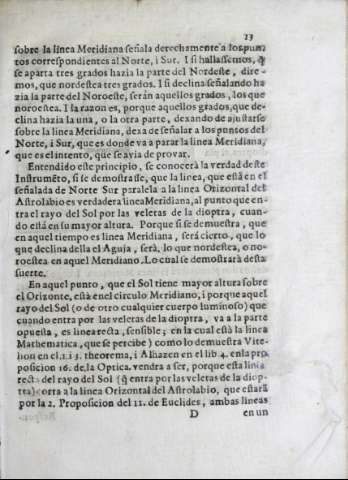 23
sobre la linea Meridiana señala derechamente a los pun
tos correspondientes al Norte, i Sur. I si hallassemos, q̃
se aparta tres grados hazia la parte del Nordeste, dire-
mos, que nordestea tres grados. I si declina señalando ha
zia la parte del Noroeste, seràn aquellos grados, los que
noroestea. I la razon es, porque aquellos grados, que de-
clina hazia la una, o la otra parte, dexando de ajustarse
sobre la linea Meridiana, dexa de señalar a los puntos del
Norte, i Sur, que es donde va a parar la linea Meridiana,
que es el intento, que se avia de provar.
Entendido este principio, se conocerà la verdad deste
Instrumẽto, si se demostrasse, que la linea, que està en el
señalada de Norte Sur paralela a la linea Orizontal del
Astrolabio es verdadera linea Meridiana, al punto que en-
tra el rayo del Sol por las veletas de la dioptra, cuan-
do està en su mayor altura. Porque si se demuestra, que
en aquel tiempo es linea Meridiana, serà cierto, que lo
que declina della el Aguja, serà, lo que nordestea, o no-
roestea en aquel Meridiano. Lo cual se demostrarà desta
suerte.
En aquel punto, que el Sol tiene mayor altura sobre
el Orizonte, està en el circulo Meridiano, i porque aquel
rayo del Sol (o de otro cualquier cuerpo luminoso) que
cuando entra por las veletas de la dioptra, va a la parte
opuesta, es linea recta, sensible; en la cual està la linea
Mathematica, que se percibe) como lo demuestra Vite-
lion en el 1. i 3. theorema, i Alhazen en el lib 4. en la pro
posicion 16. de la Optica. vendra a ser, porque esta linea
recta del rayo del Sol (q̃ entra por las veletas de la diop
tra) corta a la linea Orizontal del Astrolabio, que estarà
por la 2. Proposicion del 11. de Euclides, ambas lineas
D en un